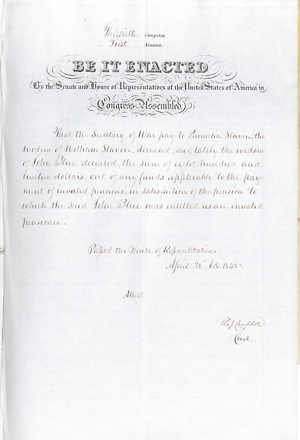 Thirtieth Congress
First Session
BE IT ENACTED
By the Senate and House of Representatives of the United States of America in
Congress Assembled
That the Secretary of War pay to Slaven, the
widow of William Slaven, deceased, and lately the widow
of John Blue, deceased, the sum of eight hundred and
twelve dollars, out of any funds applicable to the pay-
ment of invalid pensions, in satisfaction of the pension to
which the said John Blue was entitled as an invalid
pensioner.
Passed the House of Representatives
April 28 1848
Attest
Thos J Campbell
Clerk